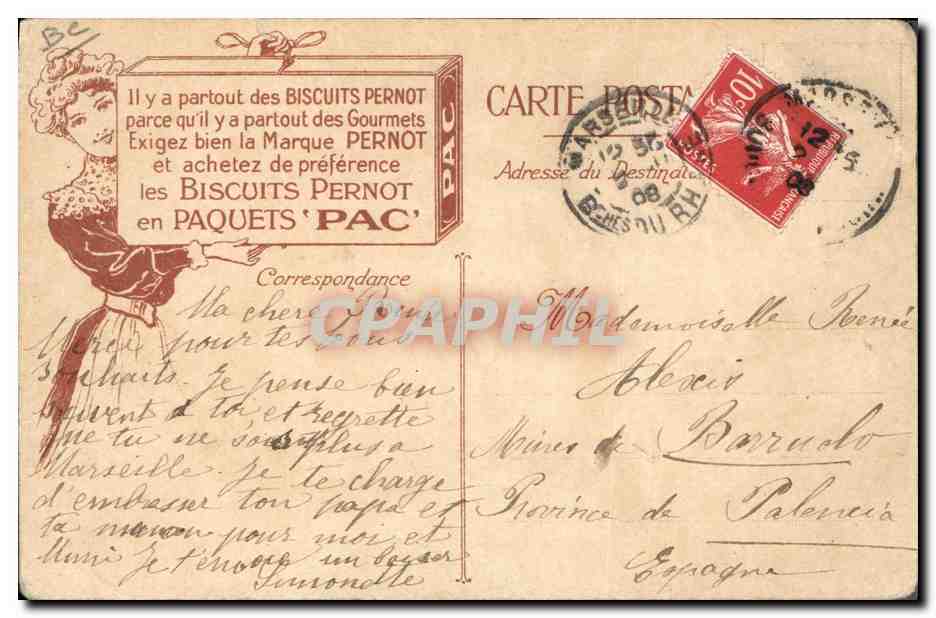 BC
Il y a partout des BISCUITS PERNOT
parce qu'il y a partout des Gourmets
Exigez bien la Marque PERNOT
et achetez de préférence
les BISCUITS PERNOT
en PAQUETS 'PAC'
PAC
CARTE POSTA
Adresse du Destinat
10c
POSTES
REPUBLIQUE FRANÇAISE
MARSEILLE
12
08
BCHES DU RH
MARSEI
12
08
Correspondance
CPAPHIL
Ma chère
Merci pour tes bons
souhaits. Je pense bien
souvent à toi, et regrette
que tu ne sois plus a
Marseille. Je te charge
d'embrasser ton papa et
ta maman pour moi et
Mimi Je t'envoie un baiser
Simonette
Mademoiselle Renée
Alexis
Mines de Barruelo
Province de Palencia
Espagne